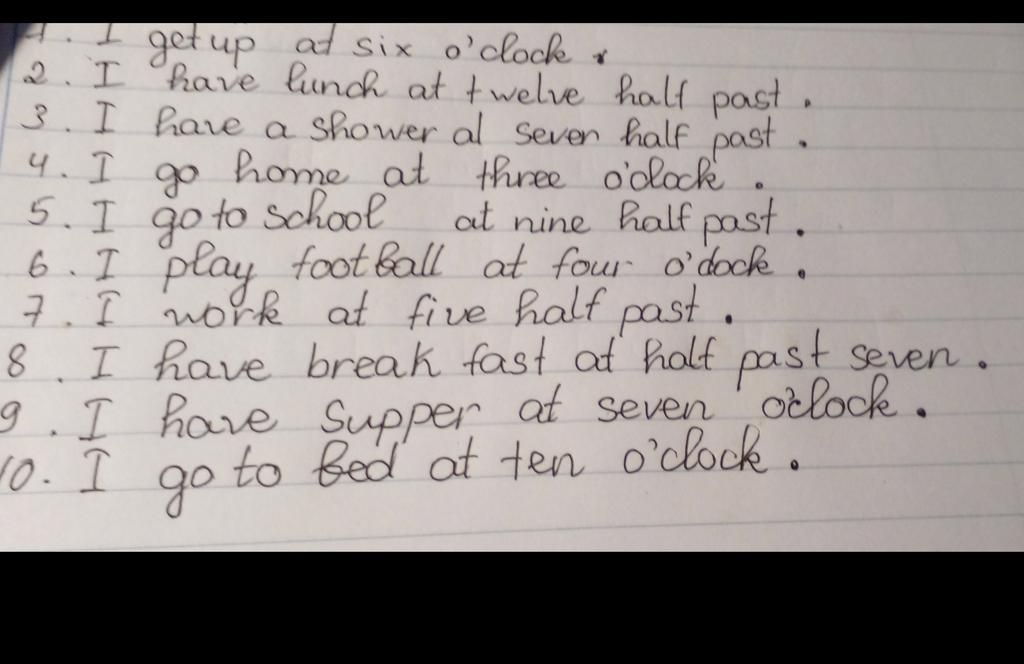 1. I get up at six o'clock.
2. I have lunch at twelve half past.
3. I have a shower at seven half past.
4. I go home at three o'clock.
5. I go to school at nine half past.
6. I play football at four o'clock.
7. I work at five half past.
8. I have break fast at half past seven.
9. I have supper at seven o'clock.
10. I go to bed at ten o'clock.